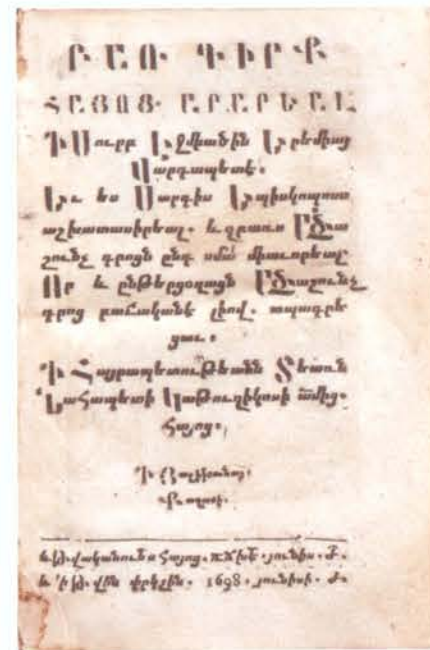 ԲԱՌ ԳԻՐՔ
ՀԱՅՈՑ ԱՐԱՐԵԱԼ
Ի Սուրբ Եջմիածին Երեմիայ
Վարդապետէ.
Եւ ես Սարգիս Եպիսկոպոսս
աշխատասիրեալ. և զբառս Ածա
շունչ գրոցն ընդ սմա միաւորեալ
Որ և ընթերցօղացն Ածաշունչ
գրոց բաւականէ լիով. տպագրե
ցաւ.
Ի Հայրապետութեանն Տեառն
Նահապետի Կաթուղիկոսի ամից.
Հայոց.
քաղաքի.
և թվականութս Հայոց. ՌՃԽԷ. յունիս. Ժ.
և ի թվին փրկչին. 1698. յունիսի. Ժ.